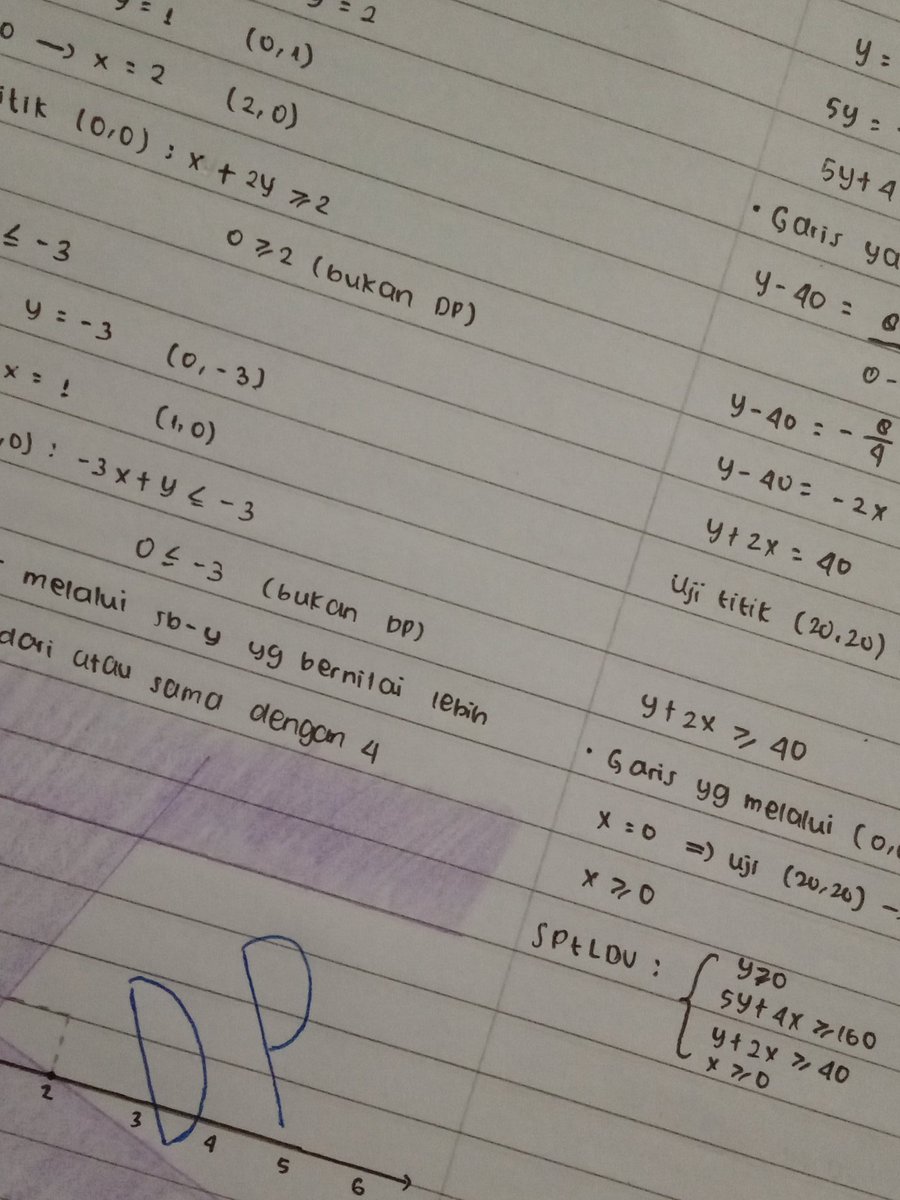 y = 1 (0,1)
y = 2
0 → x = 2 (2,0)
(0,0) : x + 2y ≥ 2
0 ≥ 2 (bukan DP)
≤ -3
y = -3 (0,-3)
x = 1 (1,0)
,0) : -3x + y ≤ -3
0 ≤ -3 (bukan DP)
melalui sb-y yg bernilai lebih
dari atau sama dengan 4
DP
2 3 4 5 6
y =
5y =
5y + 4
• Garis
y - 40 =
0 -
y - 40 = - 8/4
y - 40 = -2x
y + 2x = 40
Uji titik (20,20)
y + 2x ≥ 40
• Garis yg melalui (0,
x = 0 => uji (20,20)
x ≥ 0
SPtLDV : { y ≥ 0
5y + 4x ≥ 160
y + 2x ≥ 40
x ≥ 0